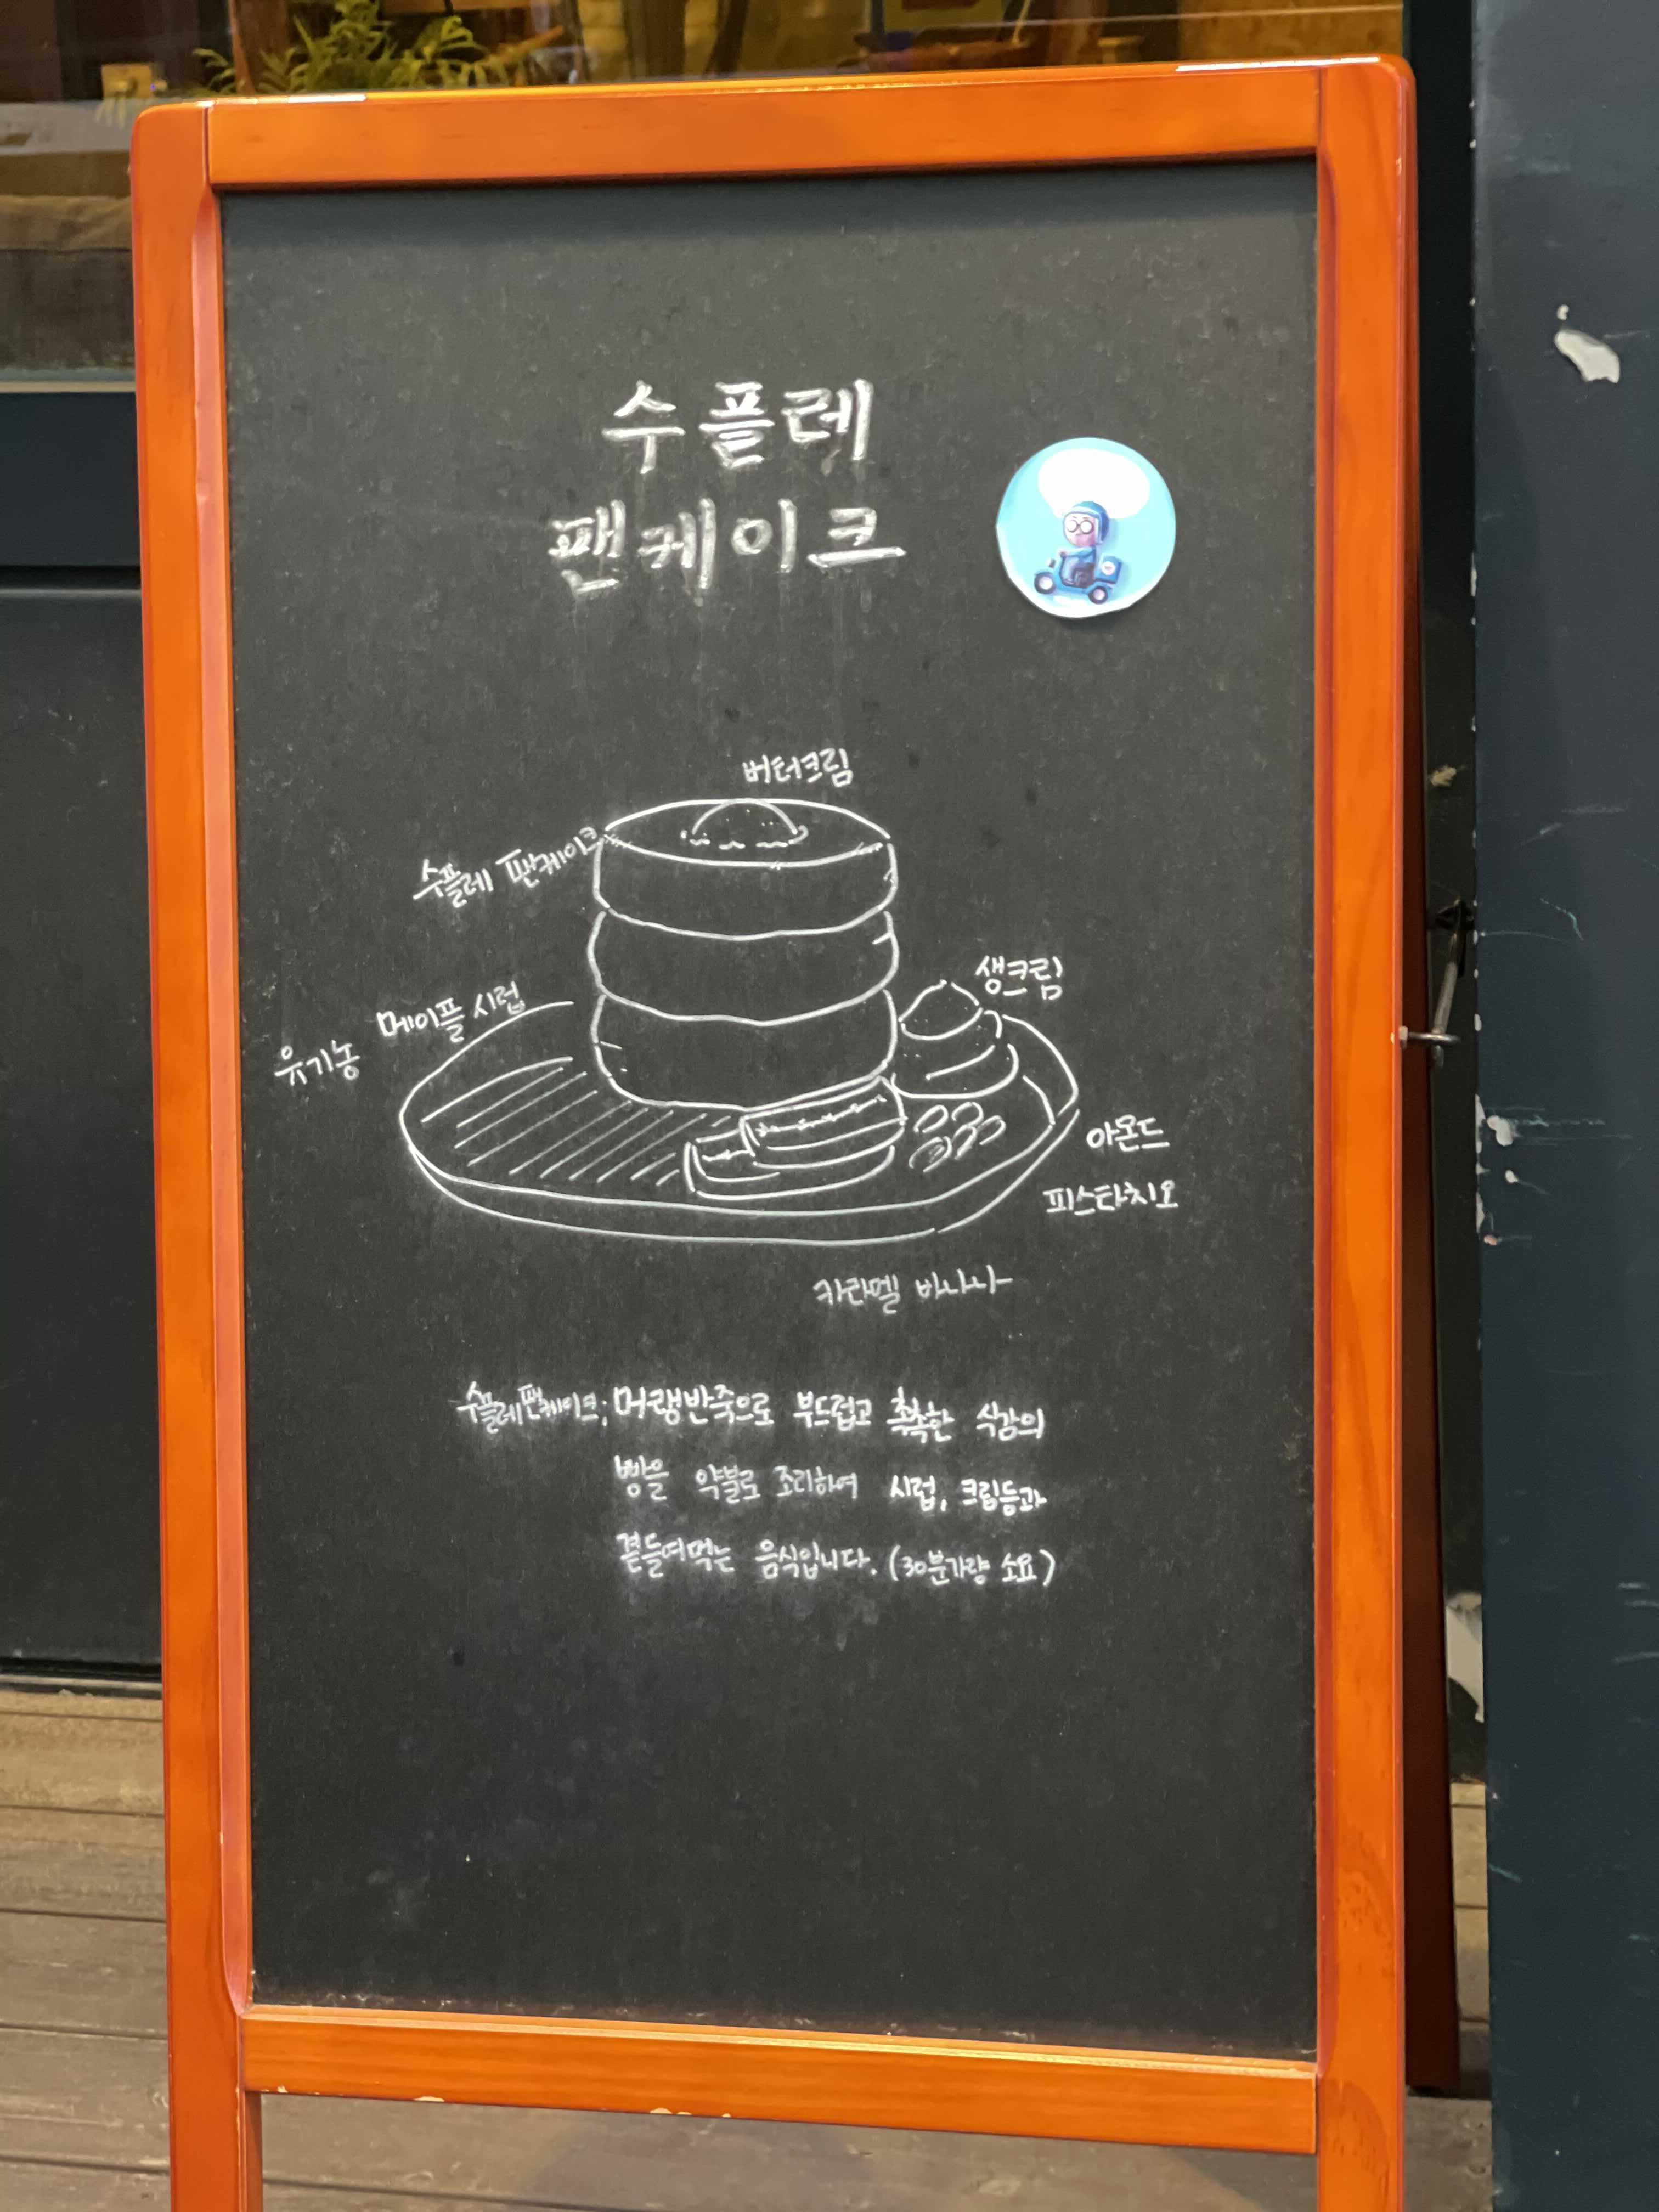 수플레
팬케이크
버터크림
수플레 팬케이크
생크림
유기농 메이플 시럽
아몬드
피스타치오
카라멜 바나나
수플레팬케이크; 머랭반죽으로 부드럽고 촉촉한 식감의
빵을 약불로 조리하여 시럽, 크림등과
곁들여먹는 음식입니다. (30분가량 소요)